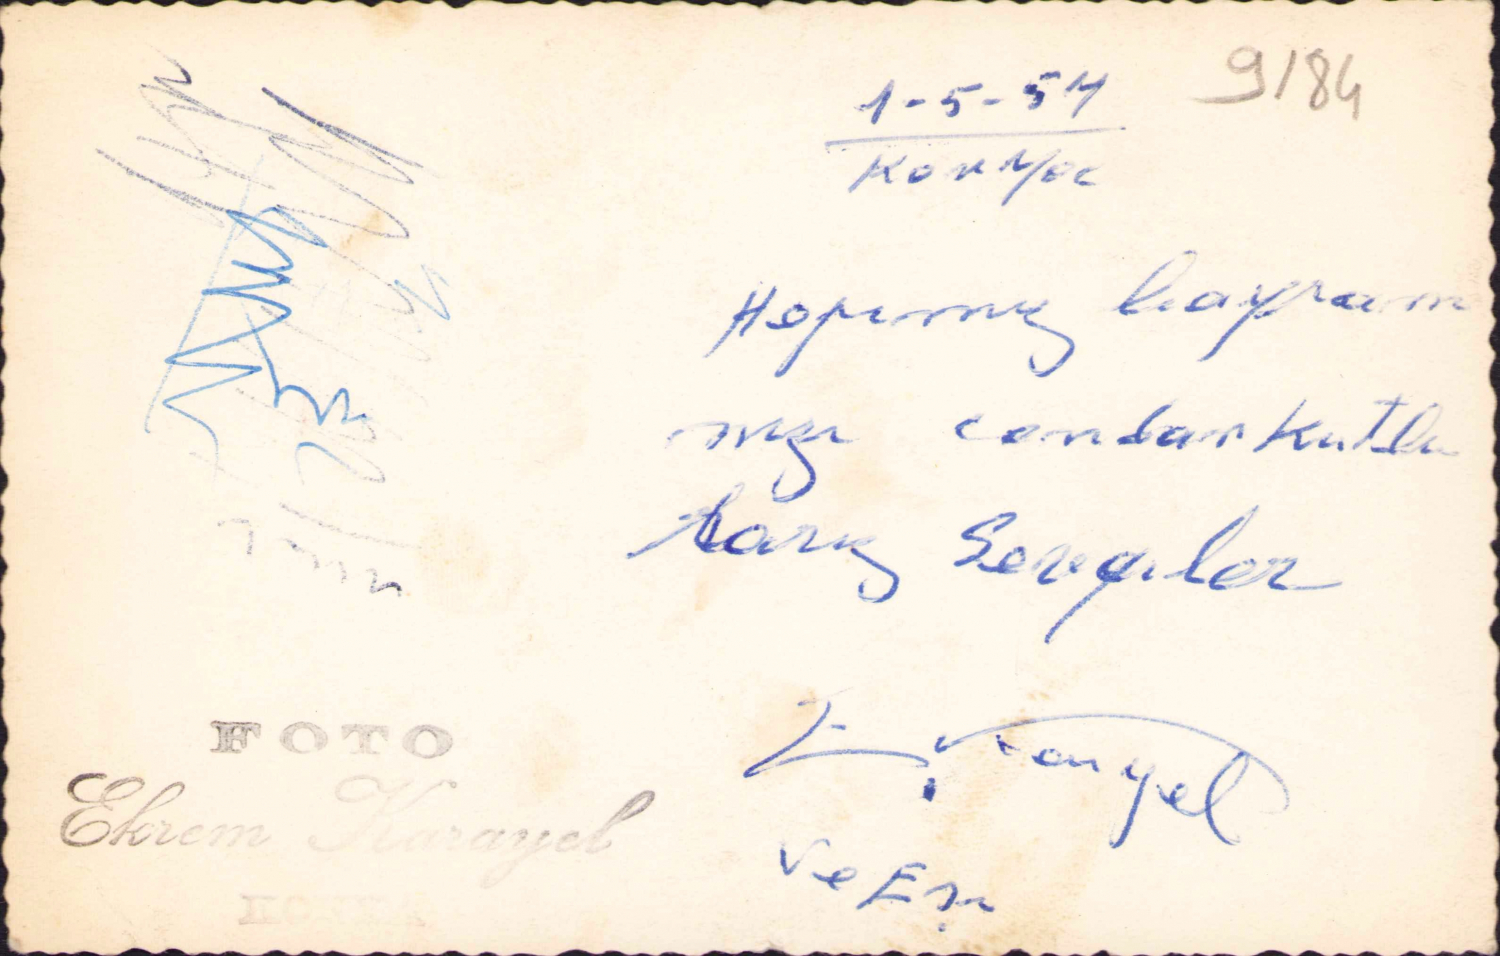 9/84
1-5-54
Konya
Hepimiz bayram
mızı candan kutlu
larız Sevgiler
E. Karayel
Ve Eşi
FOTO
Ekrem Karayel
KONYA